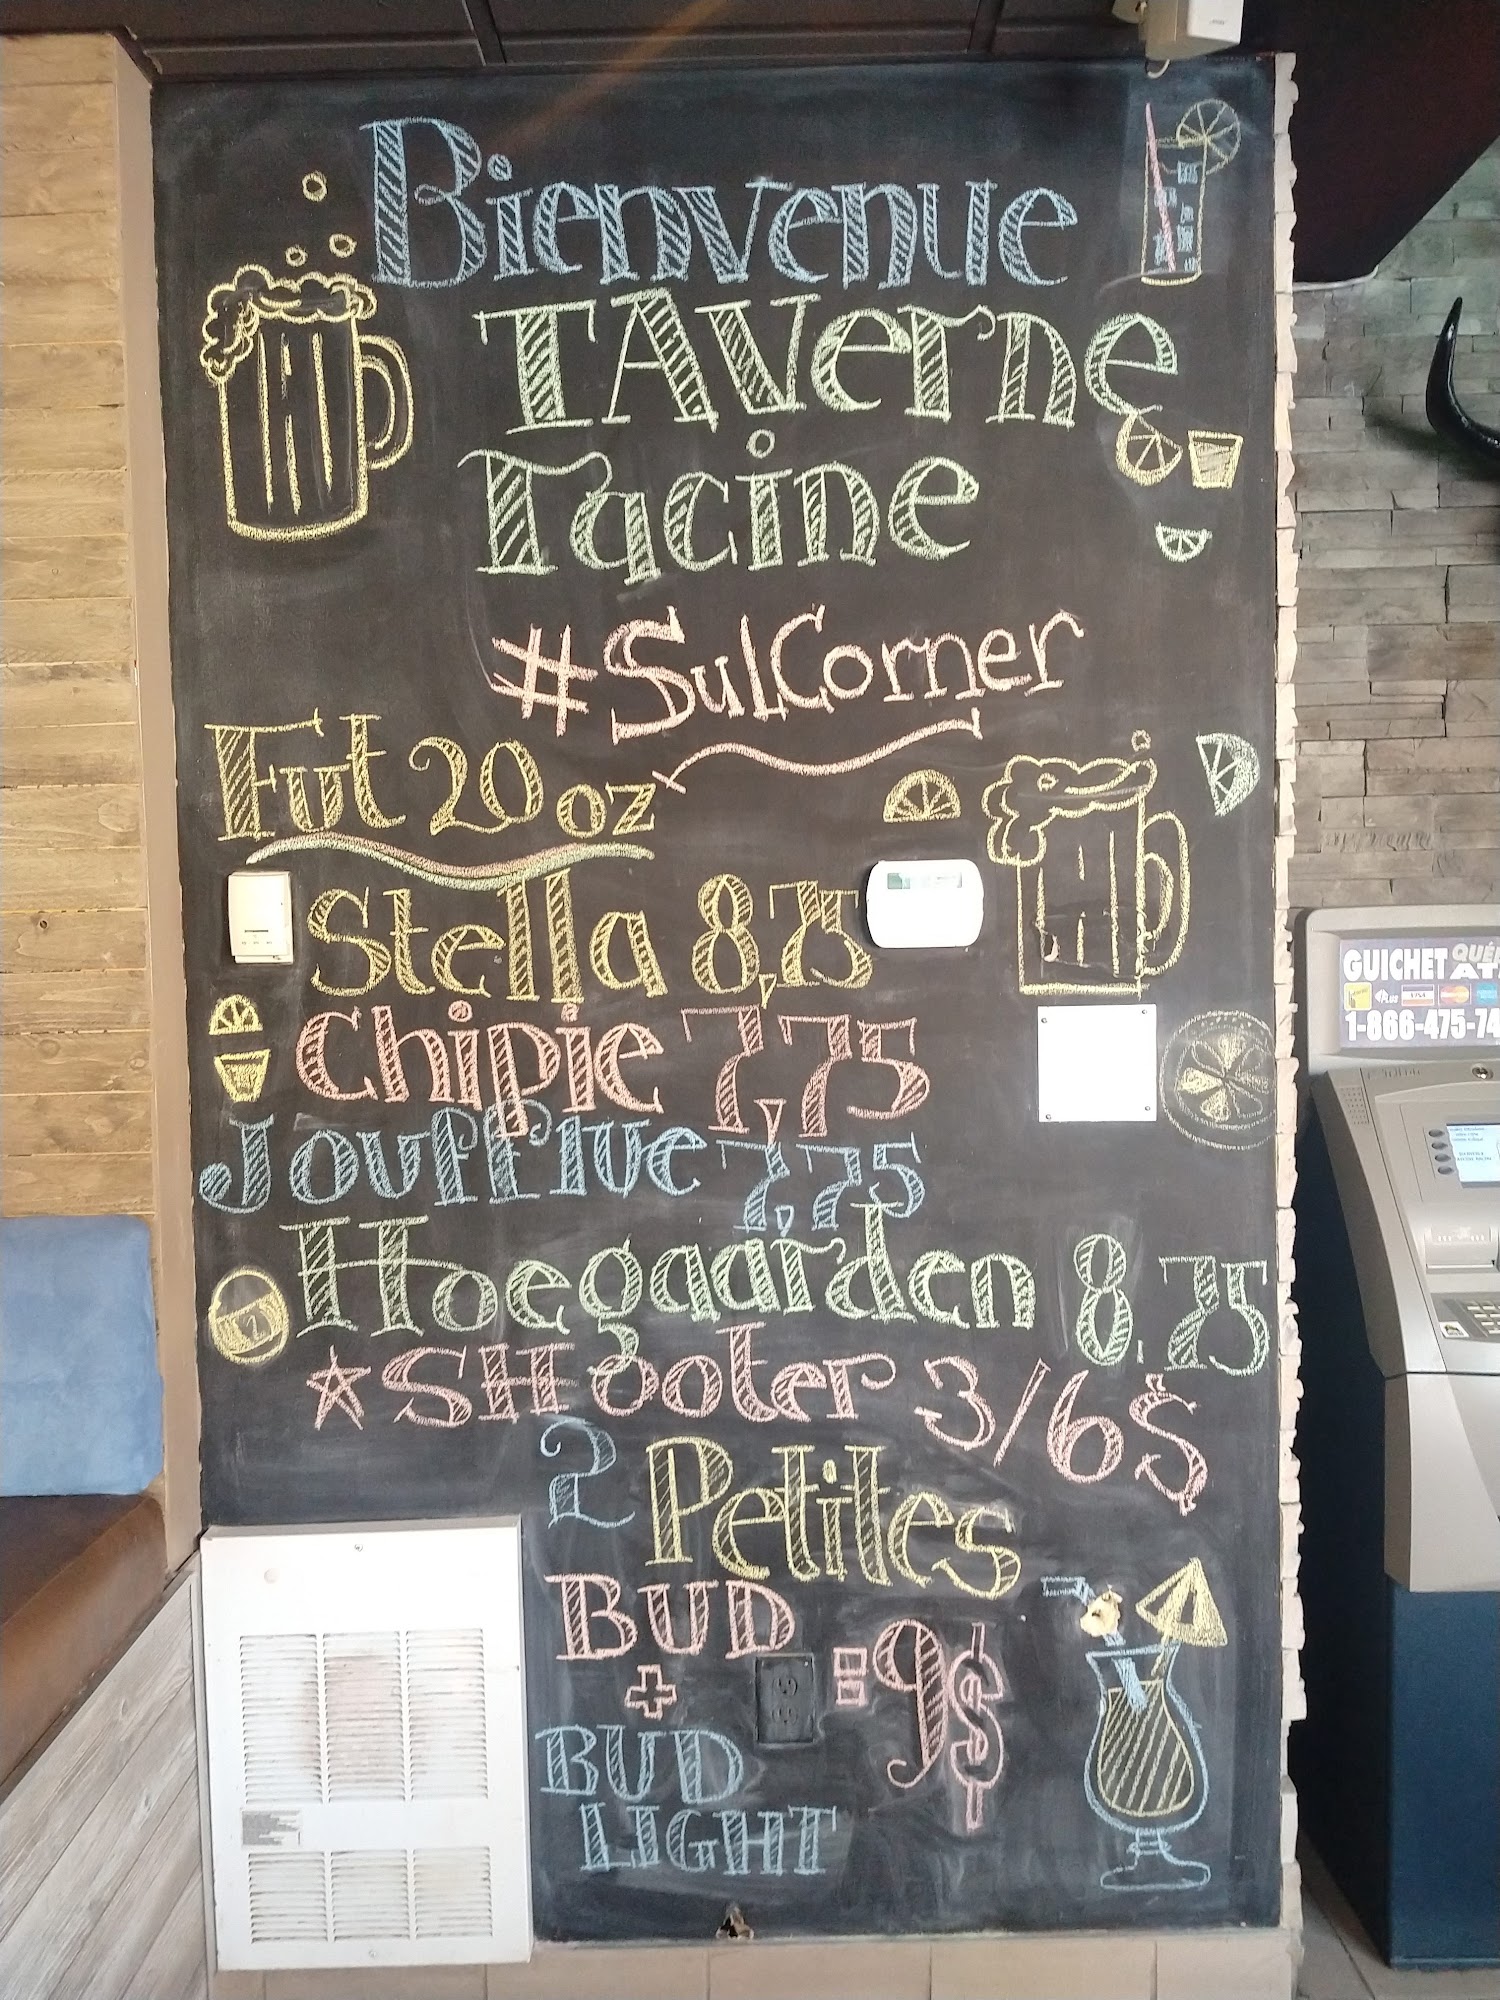 Bienvenue
TAverne
Tacine
#SulCorner
Fut 20 oz
Stella 8,75
Chipie 7,75
Joufflue 7,75
Hoegaarden 8,75
*SHooter 3/6$
2 Petites
BUD
+
BUD
LIGHT
=9$
GUICHET
1-866-475-74